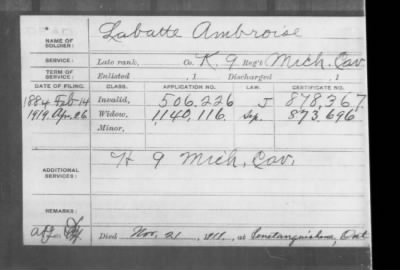 NAME OF SOLDIER: Labatte Ambroise
SERVICE: Late rank, Co. K, 9 Reg't Mich. Cav
TERM OF SERVICE: Enlisted , 1 Discharged , 1
DATE OF FILING. CLASS. APPLICATION NO. LAW. CERTIFICATE NO.
1884 Feb 14 Invalid, 506,226 J 878,367
1919, Apr. 26 Widow, 1140,116. Sep. 873,696
Minor,
ADDITIONAL SERVICES: H 9 Mich. Cav.
REMARKS:
Died Nov. 21, 1911, at Penetanguishene, Ont